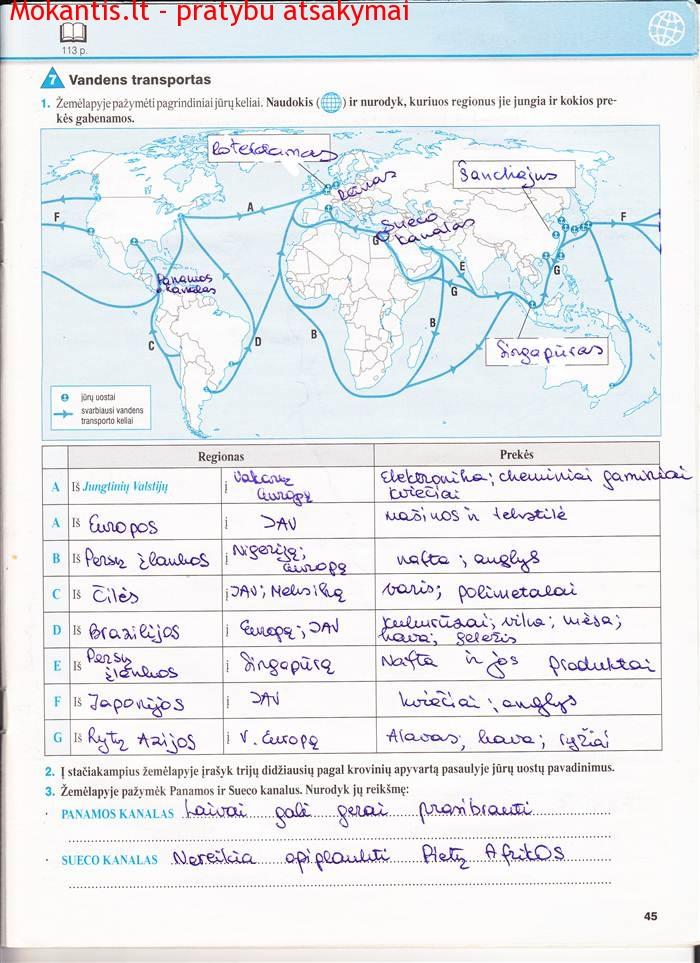 Mokantis.lt - pratybu atsakymai
113 p.
7 Vandens transportas
1. Žemėlapyje pažymėti pagrindiniai jūrų keliai. Naudokis ( ) ir nurodyk, kuriuos regionus jie jungia ir kokios pre-
kės gabenamos.
Roterdamas
Šanchajus
F
A
F
Sueco
kanalas
G
E
G
G
Panamos
kanalas
B
B
C
D
Singapūras
jūrų uostai
svarbiausi vandens
transporto keliai
Regionas Prekės
A Iš Jungtinių Valstijų į Vakarų Europą Elektronika; cheminiai gaminiai
kviečiai
A Iš Europos į JAV mašinos ir tekstilė
B Iš Persų įlankos į Nigeriją; Europą nafta; anglys
C Iš Čilės į JAV; Meksiką varis; polimetalai
D Iš Brazilijos į Europą; JAV kukurūzai; vilna; mėsa;
kava; geležis
E Iš Persų įlankos į Singapūrą Nafta ir jos produktai
F Iš Japonijos į JAV kviečiai; anglys
G Iš Rytų Azijos į V. Europą Alavas; kava; ryžiai
2. Į stačiakampius žemėlapyje įrašyk trijų didžiausių pagal krovinių apyvartą pasaulyje jūrų uostų pavadinimus.
3. Žemėlapyje pažymėk Panamos ir Sueco kanalus. Nurodyk jų reikšmę:
· PANAMOS KANALAS Laivai gali gerai prasibrauti
· SUECO KANALAS Nereikia apiplaukti Pietų Afrikos
45